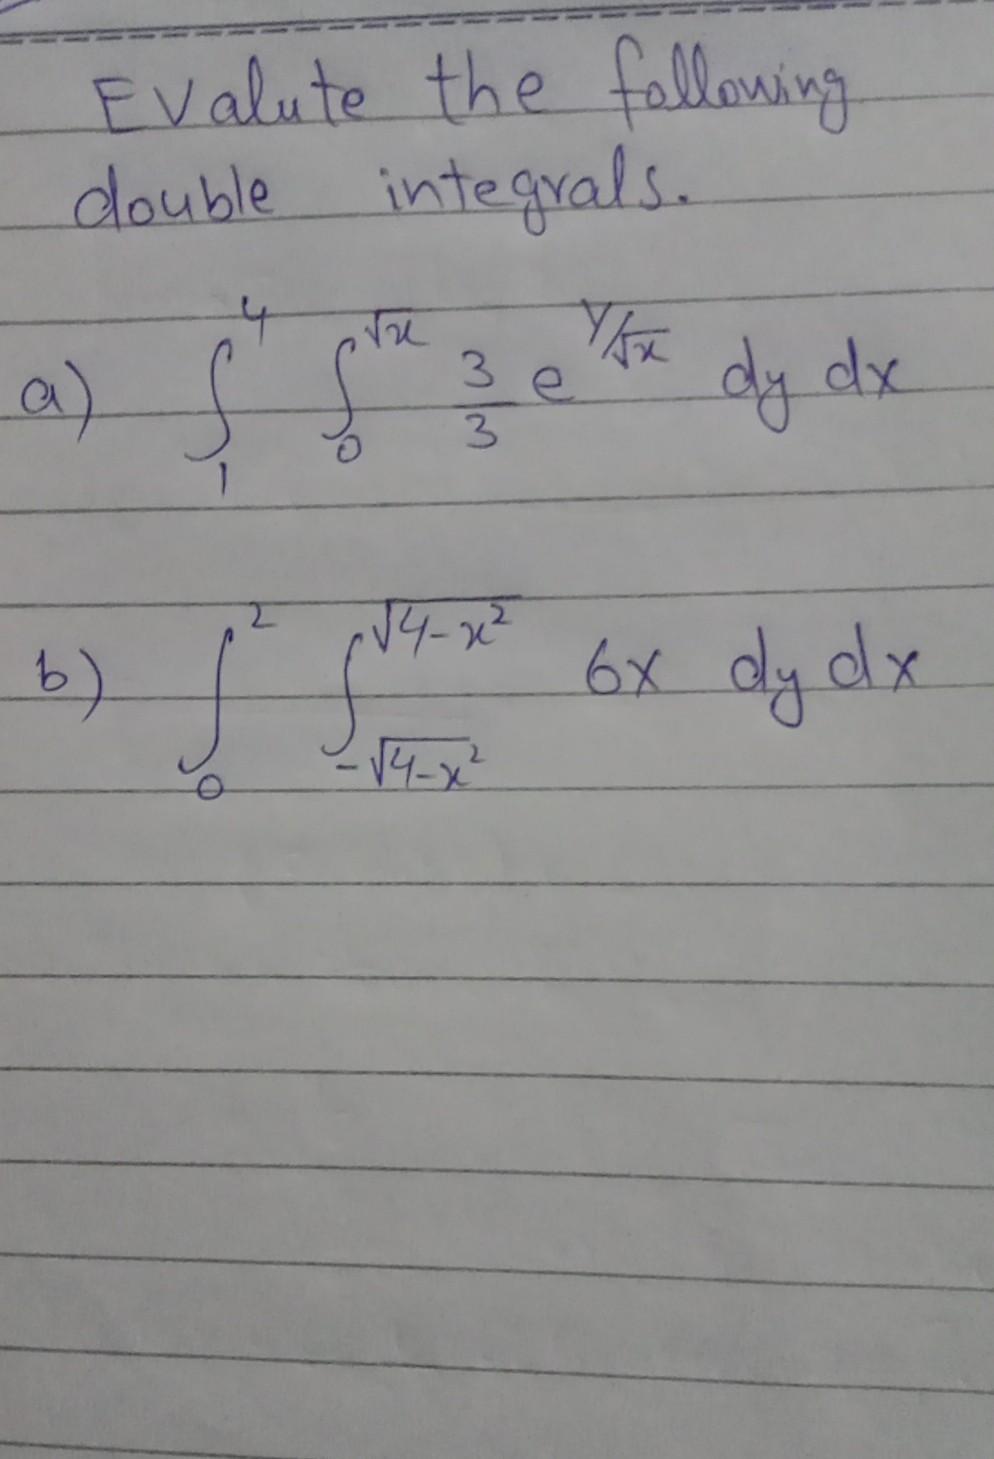 EValute the following
double integrals.
a) ∫₁⁴ ∫₀^√x 3/3 e^(y/√x) dy dx
b) ∫₀² ∫_(-√(4-x²))^(√(4-x²)) 6x dy dx